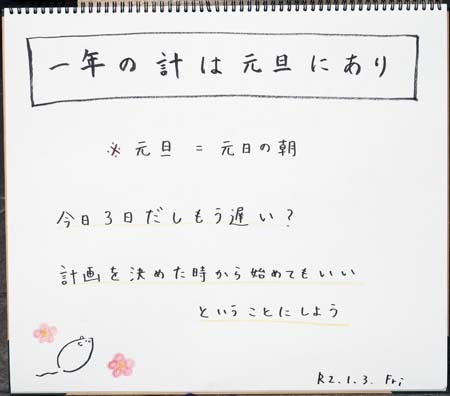 一年の計は元旦にあり
※元旦 = 元日の朝
今日3日だしもう遅い?
計画を決めた時から始めてもいい
ということにしよう
R2.1.3. Fri